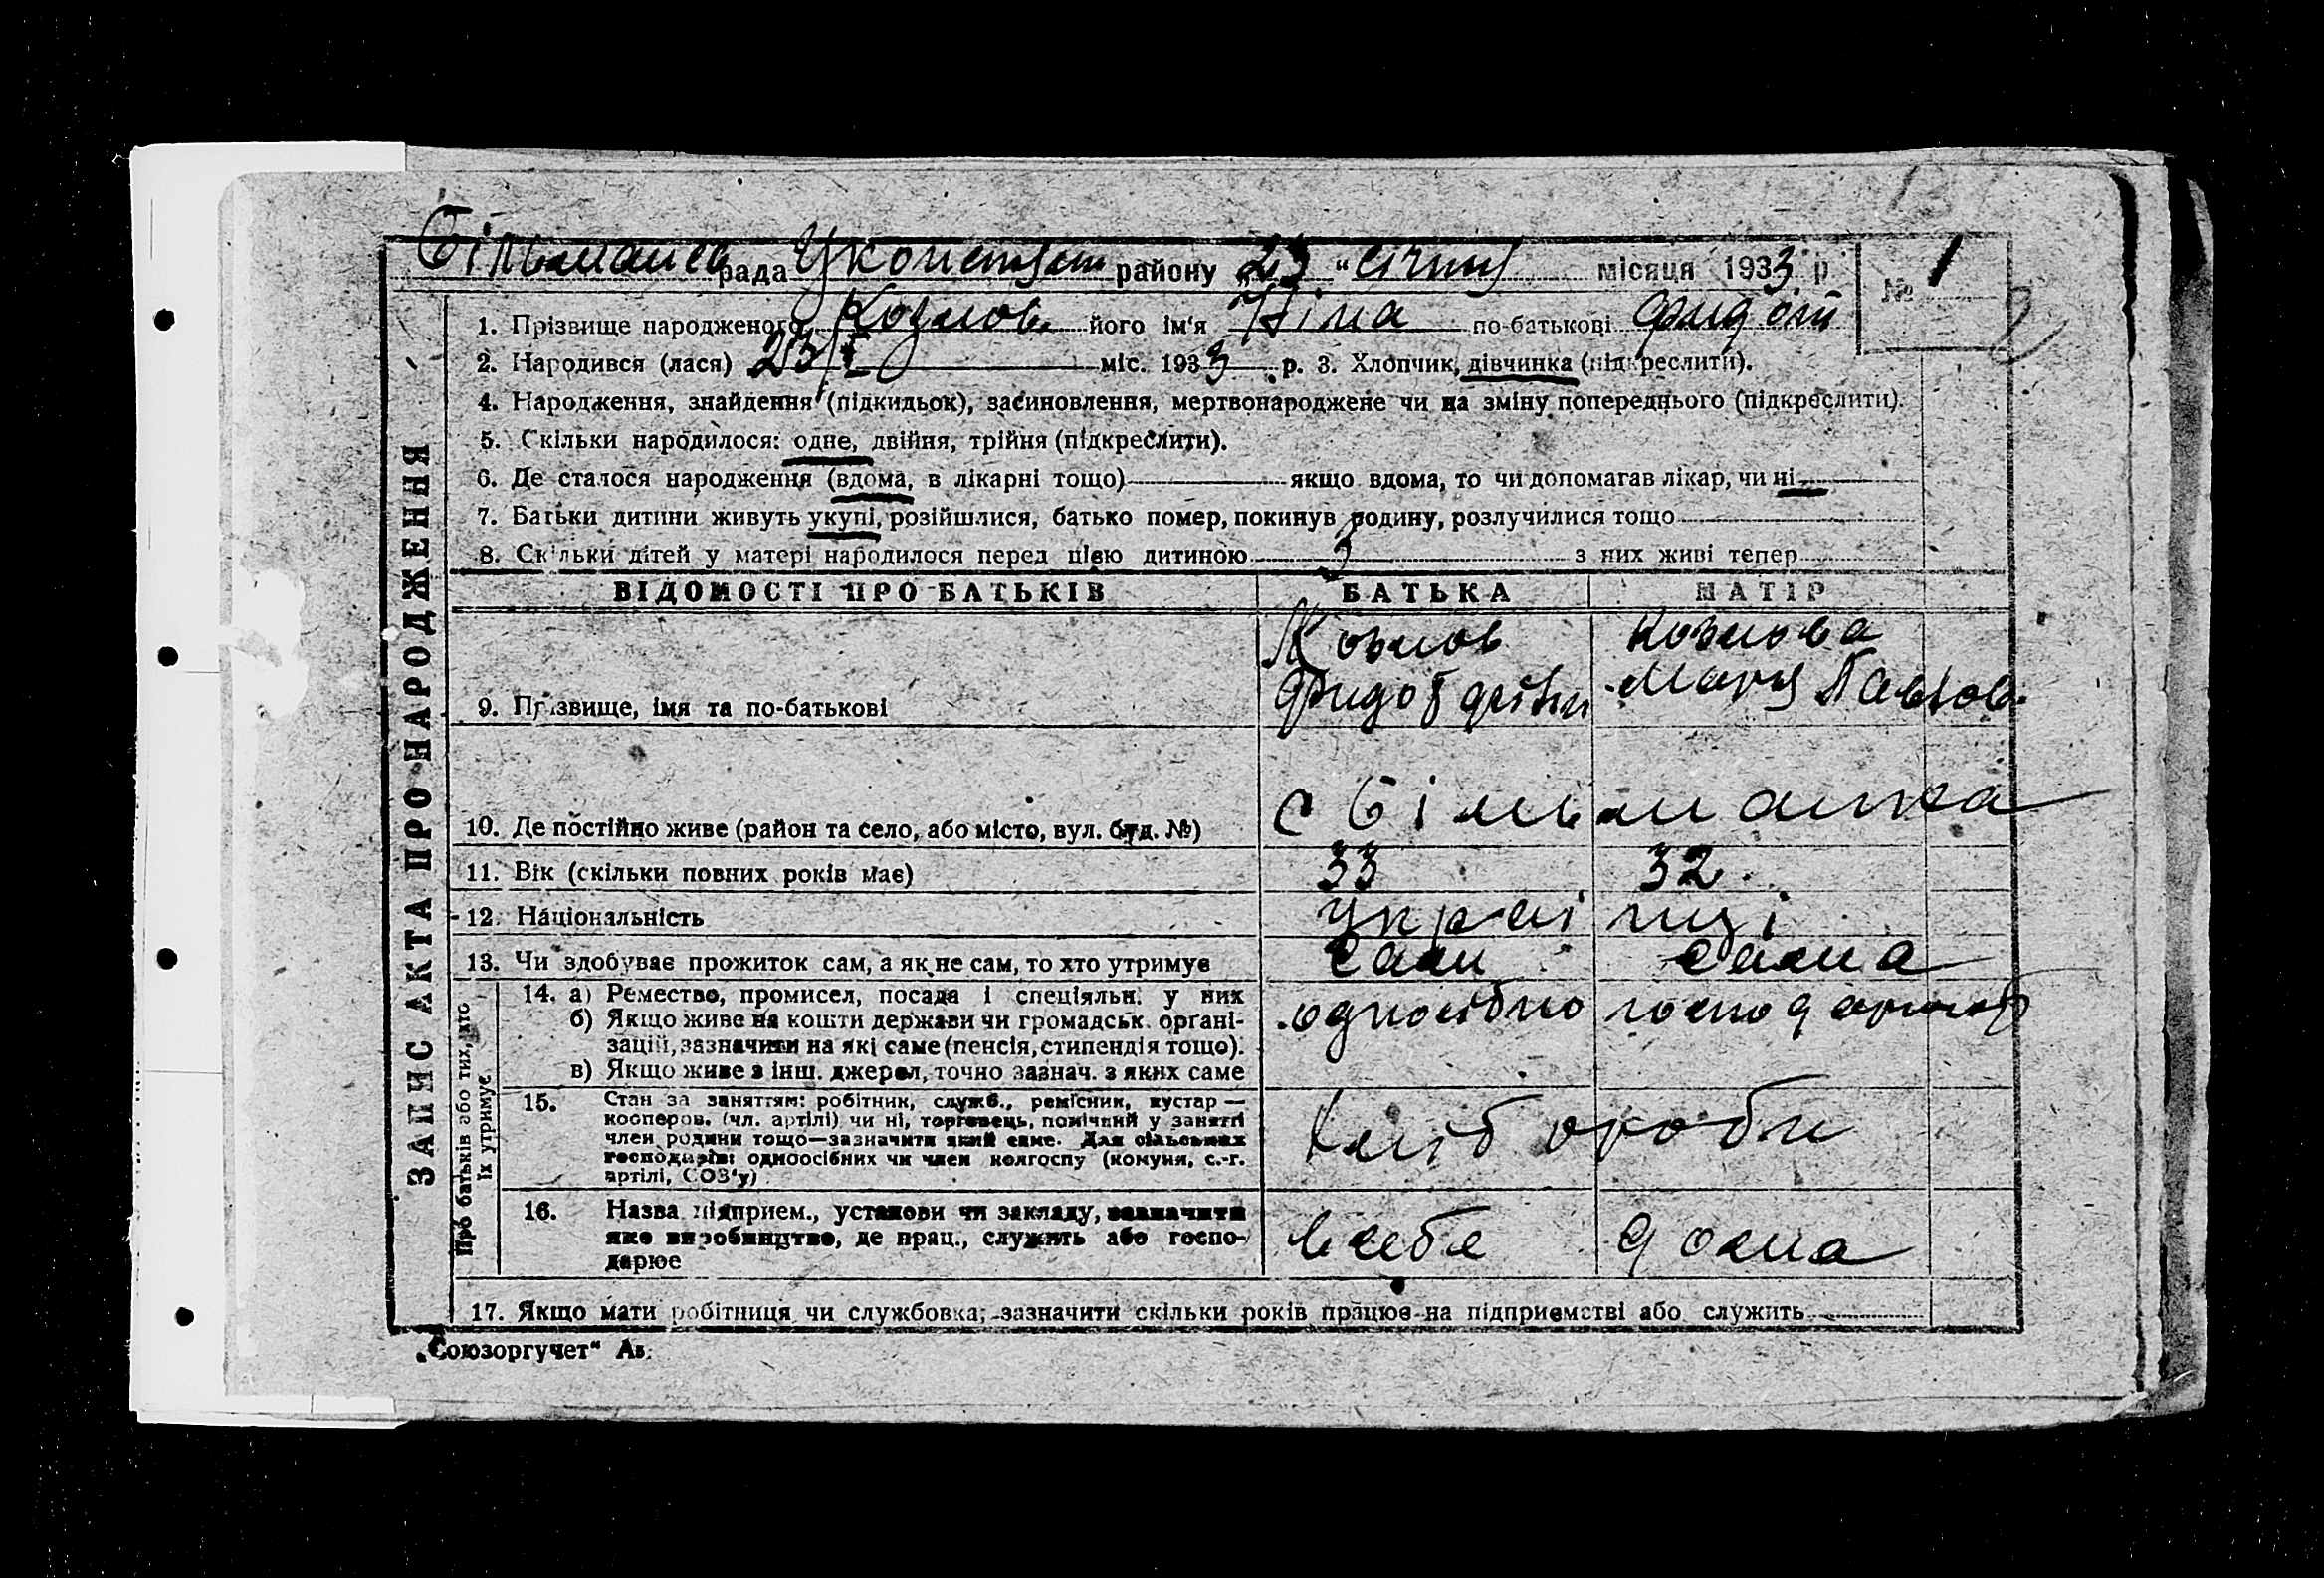 Більмансь рада Уконстян району 23 "січня місяця 1933 р. № 1
1. Прізвище народженого Козлова його ім'я Ніна по-батькові Фидот
2. Народився (лася) 23/I міс. 1933 р. 3. Хлопчик, дівчинка (підкреслити).
4. Народження, знайдення (підкидьок), засиновлення, мертвонароджене чи на зміну попереднього (підкреслити).
5. Скільки народилося: одне, двійня, трійня (підкреслити).
6. Де сталося народження (вдома, в лікарні тощо) якщо вдома, то чи допомагав лікар, чи ні
7. Батьки дитини живуть укупі, розійшлися, батько помер, покинув родину, розлучилися тощо
8. Скільки дітей у матері народилося перед цією дитиною 3 з них живі тепер
ЗАПИС АКТА ПРО НАРОДЖЕННЯ
ВІДОМОСТІ ПРО БАТЬКІВ БАТЬКА МАТІР
Козлов Козлова
9. Прізвище, імя та по-батькові Фидот Мария Павлов
10. Де постійно живе (район та село, або місто, вул. буд. №) с Більманка
11. Вік (скільки повних років має) 33 32
12. Національність українці
13. Чи здобуває прожиток сам, а як не сам, то хто утримує сам сама
Про батьків або тих, хто їх утримує
14. а) Ремество, промисел, посада і спеціяльн. у них одноосібно господарюют
б) Якщо живе на кошти держави чи громадськ. органі-
зацій, зазначити на які саме (пенсія, стипендія тощо).
в) Якщо живе з інш. джерел, точно зазнач. з яких саме
15. Стан за заняттям: робітник, служб., ремісник, кустар —
кооперов. (чл. артілі) чи ні, торговець, помічний у занятті
член родини тощо—зазначити який саме. Для сільських
господарів: одноосібних чи член колгоспу (комуня, с.-г.
артілі, СОЗ'у) хлібороби
16. Назва підприєм., установи чи закладу, зазначити
яке виробництво, де прац., служить або госпо-
дарює в себе дома
17. Якщо мати робітниця чи службовка, зазначити скільки років працює на підприємстві або служить
„Союзоргучет“ Ав.